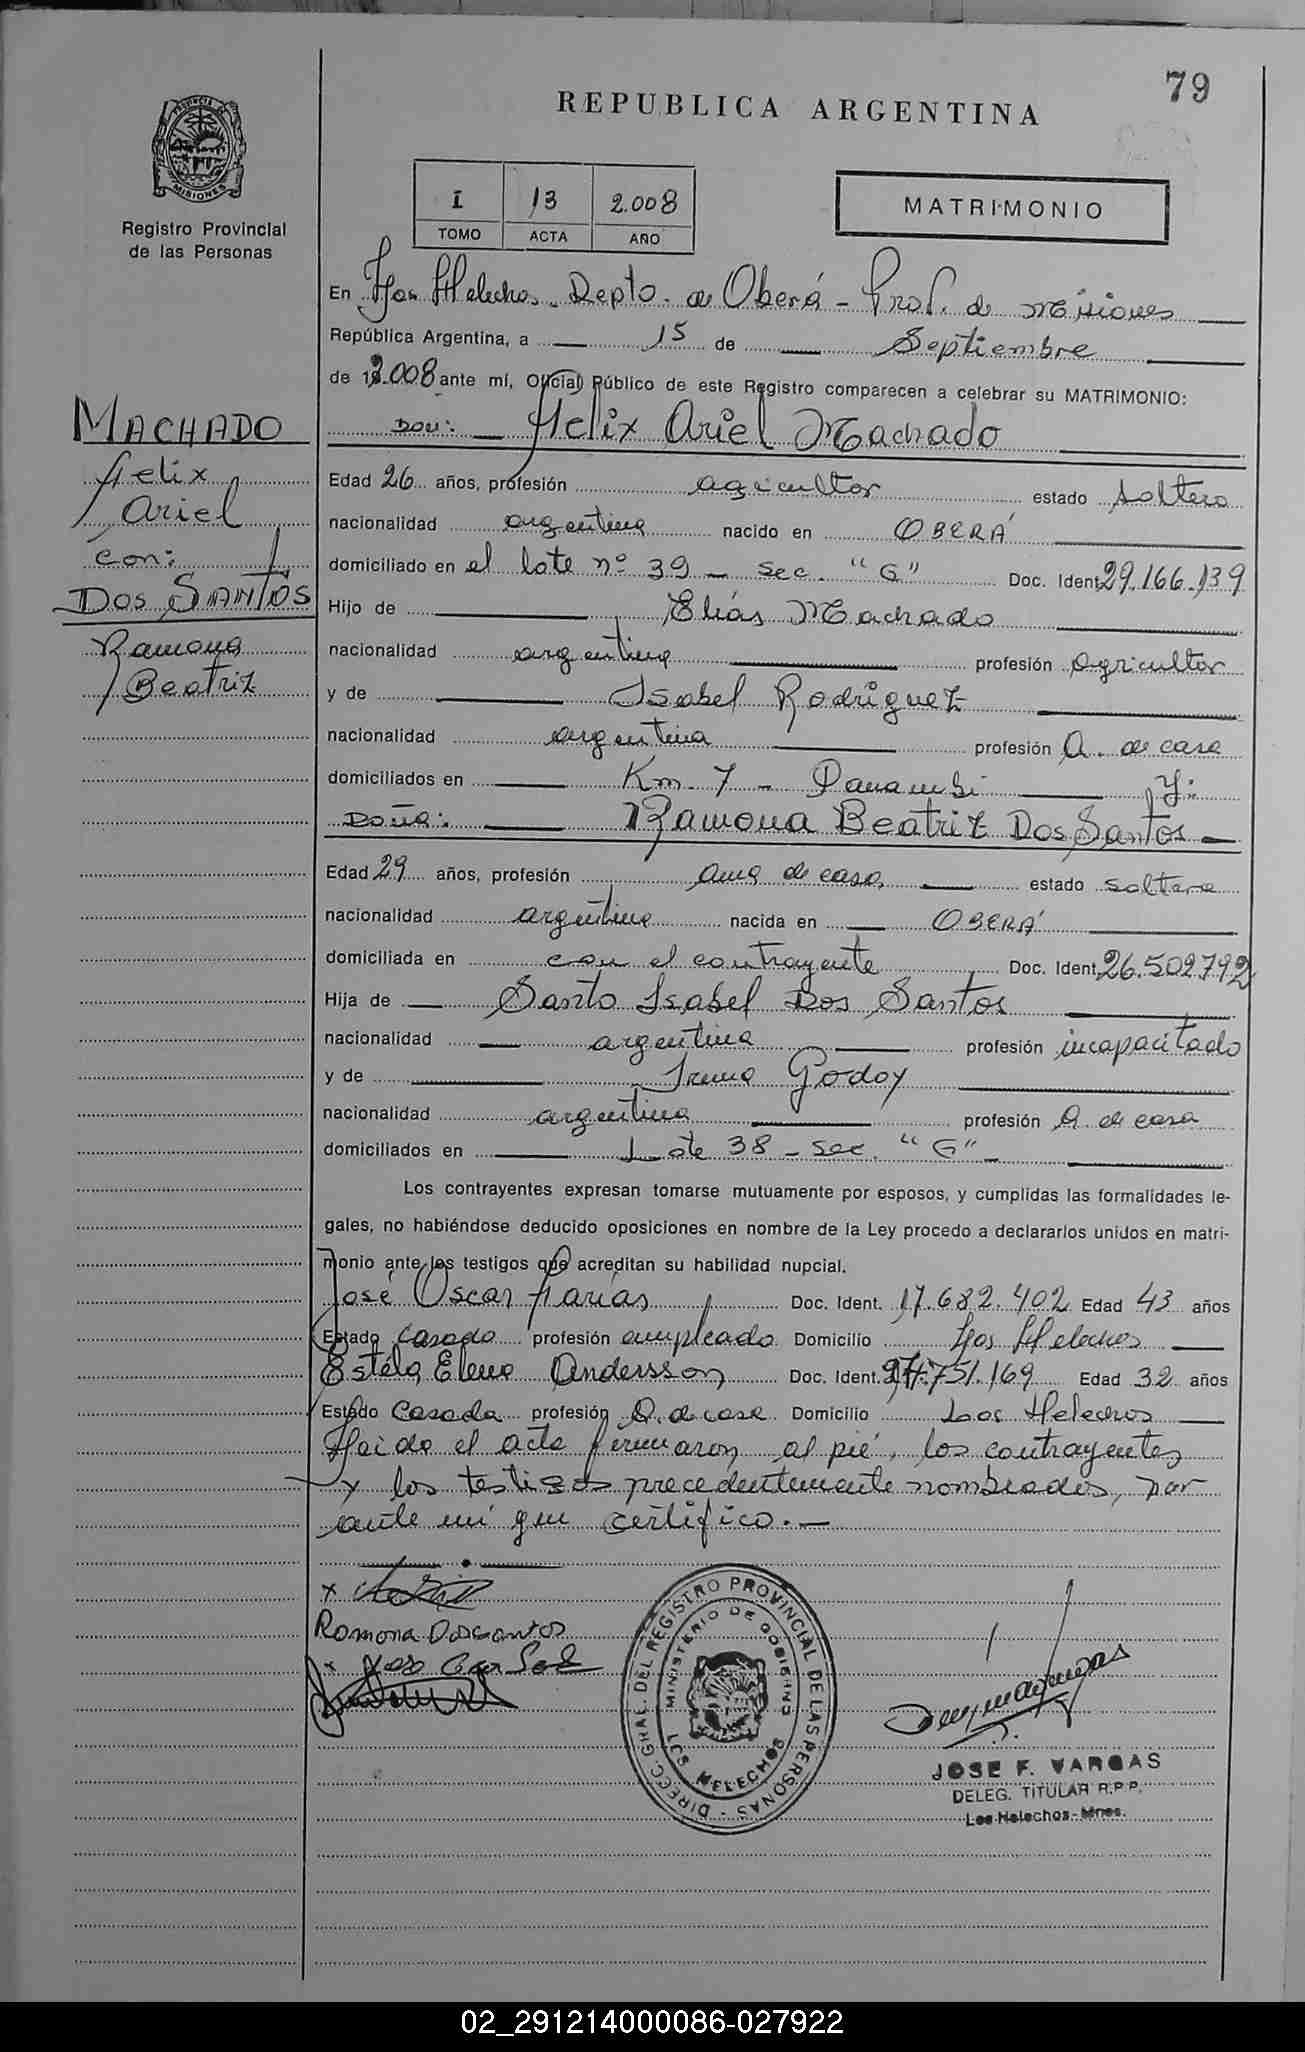 79
REPUBLICA ARGENTINA
PROVINCIA DE
MISIONES
Registro Provincial
de las Personas
I 13 2.008
TOMO ACTA AÑO
MATRIMONIO
En Los Helechos - Depto. de Oberá - Prov. de Misiones
República Argentina, a 15 de Septiembre
de 2.008 ante mí, Oficial Público de este Registro comparecen a celebrar su MATRIMONIO:
MACHADO
Felix
Ariel
con:
DOS SANTOS
Ramona
Beatriz
DON: Felix Ariel Machado
Edad 26 años, profesión agricultor estado soltero
nacionalidad argentina nacido en OBERÁ
domiciliado en el lote nº 39 - sec. "G" Doc. Ident. 29.166.139
Hijo de Elías Machado
nacionalidad argentina profesión agricultor
y de Isabel Rodriguez
nacionalidad argentina profesión A. de casa
domiciliados en Km. 7 - Panambi y:
DOÑA: Ramona Beatriz Dos Santos
Edad 29 años, profesión ama de casa estado soltera
nacionalidad argentina nacida en OBERÁ
domiciliada en con el contrayente Doc. Ident. 26.502.792
Hija de Santo Isabel Dos Santos
nacionalidad argentina profesión incapacitado
y de Irena Godoy
nacionalidad argentina profesión A. de casa
domiciliados en Lote 38 - sec. "G"
Los contrayentes expresan tomarse mutuamente por esposos, y cumplidas las formalidades le-
gales, no habiéndose deducido oposiciones en nombre de la Ley procedo a declararlos unidos en matri-
monio ante los testigos que acreditan su habilidad nupcial.
José Oscar Farías Doc. Ident. 17.682.402 Edad 43 años
Estado Casado profesión empleado Domicilio Los Helechos
Estéla Elena Andersson Doc. Ident. 24.751.169 Edad 32 años
Estado Casada profesión A. de casa Domicilio Los Helechos
Leido el acta firmaron al pié, los contrayentes
y los testigos precedentemente nombrados, por
ante mi que certifico.-
Ramona Dossantos
DIRECC. GRAL. DEL REGISTRO PROVINCIAL DE LAS PERSONAS
MINISTERIO DE GOBIERNO
LOS HELECHOS
JOSE F. VARGAS
DELEG. TITULAR R.P.P.
Los Helechos - Mnes.
02_291214000086-027922